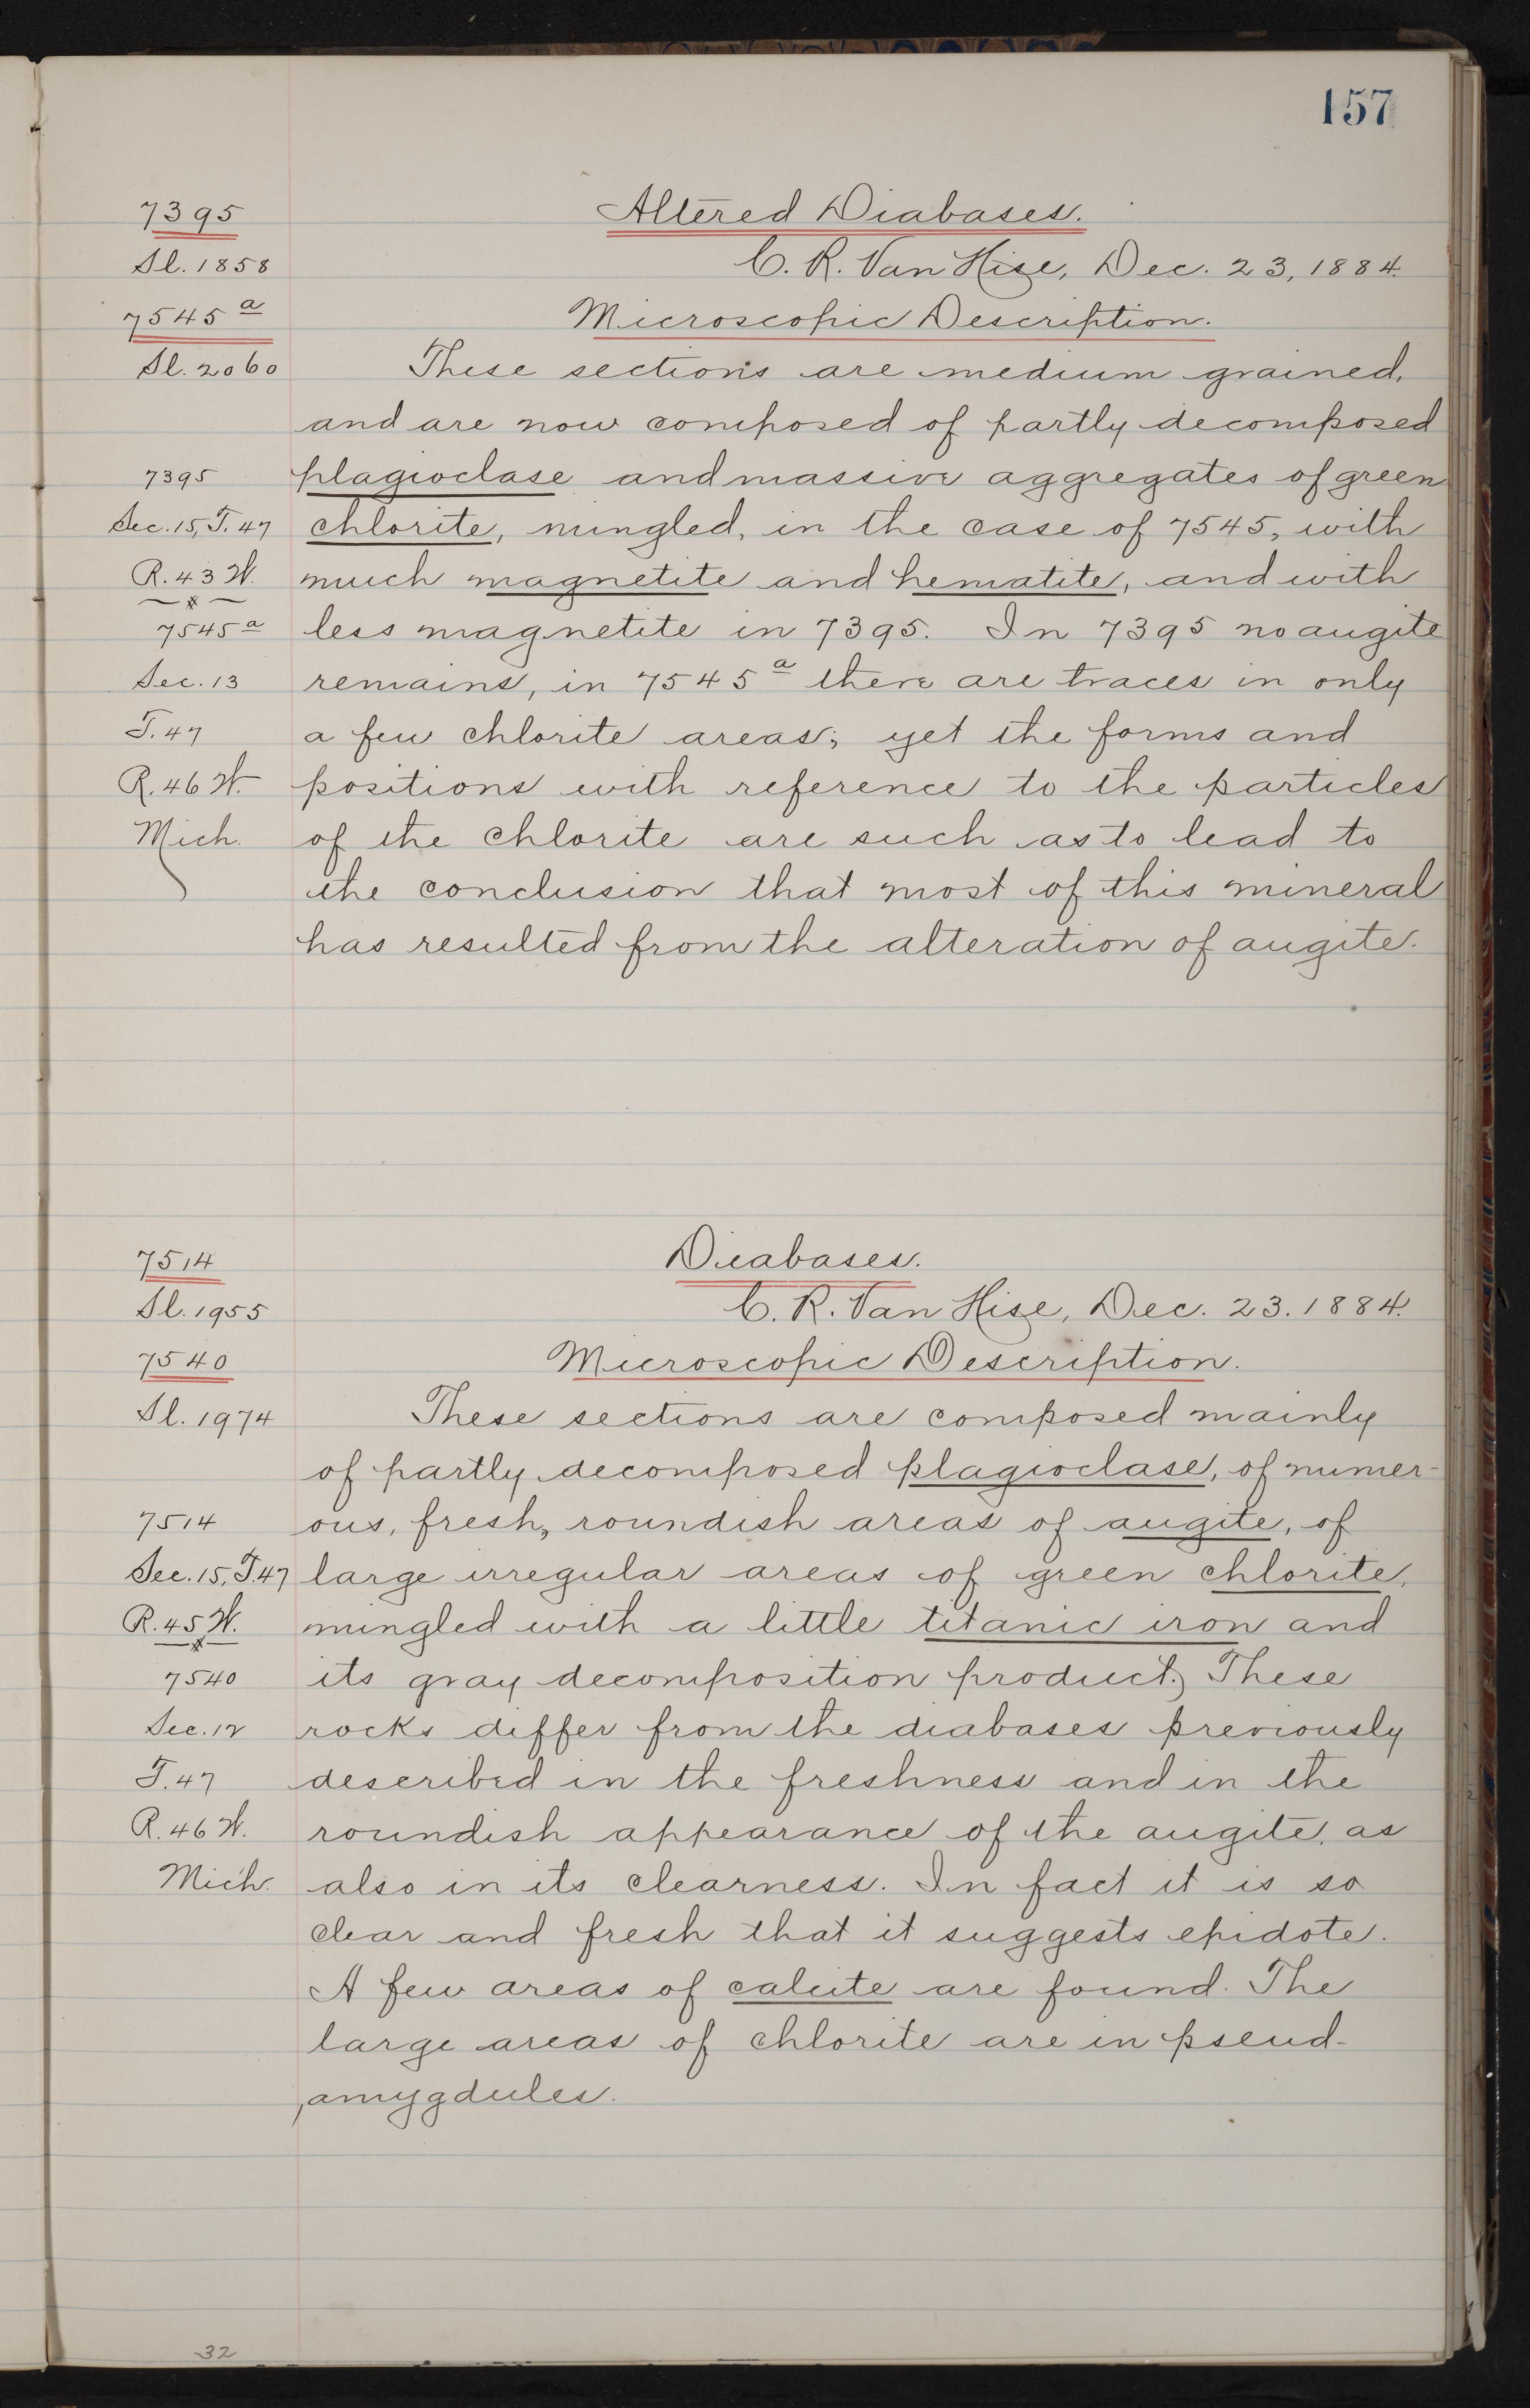 157
7395 Altered Diabases.
Sl. 1858 C. R. Van Hise, Dec. 23, 1884.
7545a Microscopic Description.
Sl. 2060 These sections are medium grained,
and are now composed of partly decomposed
7395 plagioclase and massive aggregates of green
Sec. 15, T. 47 chlorite, mingled, in the case of 7545, with
R. 43 W. much magnetite and hematite, and with
7545a less magnetite in 7395. In 7395 no augite
Sec. 13 remains, in 7545a there are traces in only
T. 47 a few chlorite areas; yet the forms and
R. 46 W. positions with reference to the particles
Mich. of the chlorite are such as to lead to
the conclusion that most of this mineral
has resulted from the alteration of augite.
7514 Diabases.
Sl. 1955 C. R. Van Hise, Dec. 23. 1884.
7540 Microscopic Description.
Sl. 1974 These sections are composed mainly
of partly decomposed plagioclase, of numer-
7514 ous, fresh, roundish areas of augite, of
Sec. 15, T. 47 large irregular areas of green chlorite,
R. 45 W. mingled with a little titanic iron and
7540 its gray decomposition product. These
Sec. 12 rocks differ from the diabases previously
T. 47 described in the freshness and in the
R. 46 W. roundish appearance of the augite, as
Mich. also in its clearness. In fact it is so
clear and fresh that it suggests epidote.
A few areas of calcite are found. The
large areas of chlorite are in pseud-
amygdules.
32